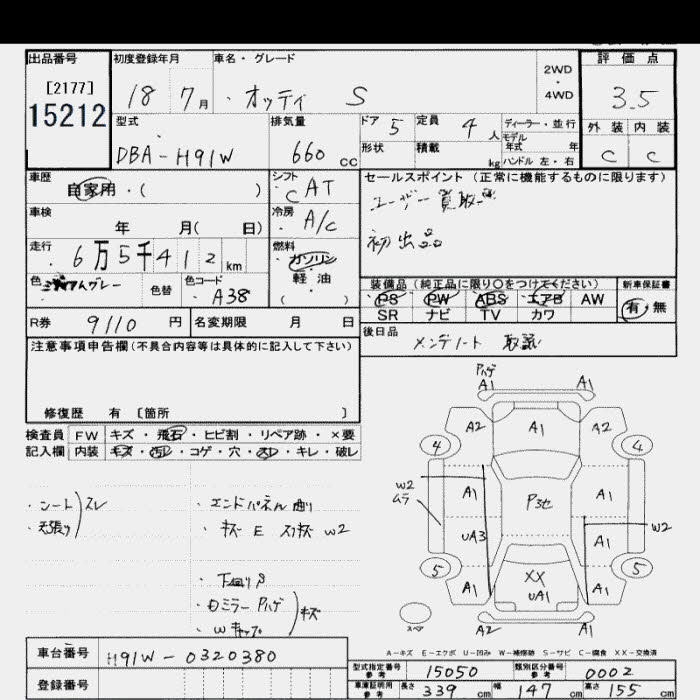 出品番号
[2177]
15212
初度登録年月
18 7月
車名・グレード
オッティ S
2WD
・
4WD
評価点
3.5
外装 内装
C C
型式
DBA-H91W
排気量
660 cc
ドア 5
定員 4 人
形状
積載 kg
ディーラー・並行
モデル
年式 年
ハンドル 左・右
車歴
自家用・( )
シフト
C AT
車検
年 月( 日)
冷房
A/C
走行
6万5千412 km
燃料
ガソリン
軽油
( )
色
グレー
色替
色コード
A38
セールスポイント(正常に機能するものに限ります)
ユーザー買取
初出品
装備品(純正品に限り〇をつけてください)
PS PW ABS エアB AW
SR ナビ TV カワ
新車保証書
有・無
R券 9110 円
名変期限 月 日
後日品
メンテノート 取説
注意事項申告欄(不具合内容等は具体的に記入して下さい)
修復歴 有 [箇所 ]
検査員 FW キズ・飛石・ヒビ割・リペア跡・×要
記入欄 内装 キズ・汚レ・コゲ・穴・スレ・キレ・破レ
・シート
・天張り
スレ
・エンドパネル曲り
・キズ E スリキズ W2
・下回りS
・ミラーPハゲ
・Wキャップ
キズ
Pハゲ
A1 A1
A2 A1 A2
4 4
W2
ムラ
A1 P3セ A1
UA3 A1 W2
5 5
A1 XX A1
UA1
スペア
A2 A1
A-キズ E-エクボ U-凹み W-補修跡 S-サビ C-腐食 XX-交換済
車台番号 H91W-0320380
登録番号
型式指定番号
参考
15050
類別区分番号
参考
0002
車庫証明用
参考
長さ 339 cm 幅 147 cm 高さ 155 cm